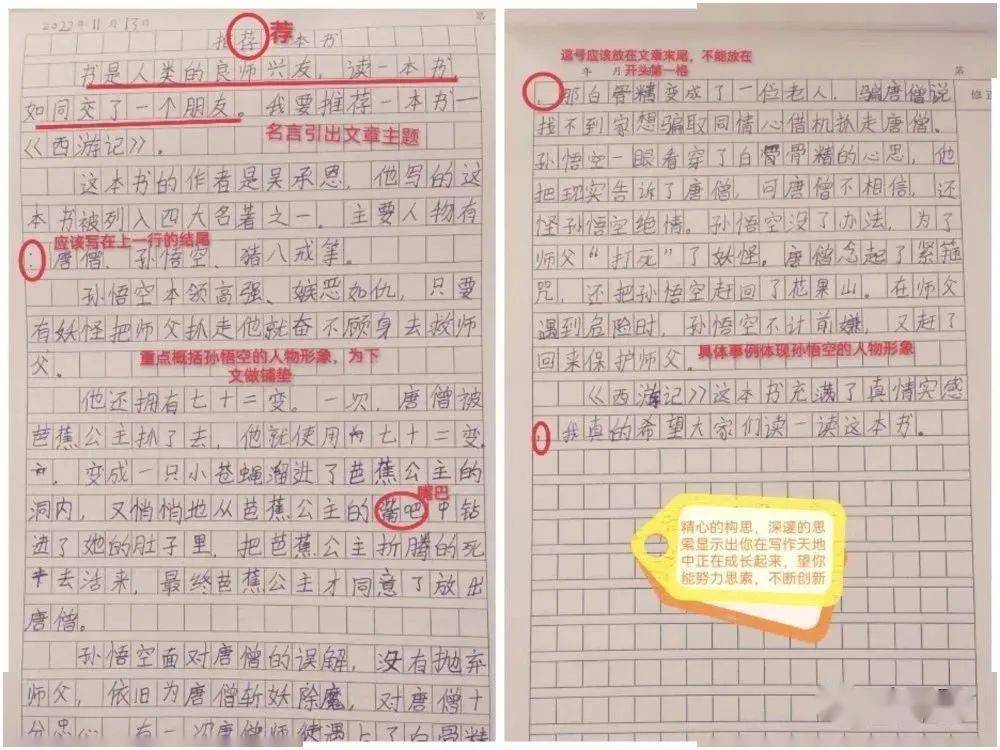 2022年11月13日
第
荐
推荐一本书
书是人类的良师兴友，读一本书
如同交了一个朋友。我要推荐一本书—
《西游记》。
名言引出文章主题
这本书的作者是吴承恩，他写的这
本书被列入四大名著之一。主要人物有
应该写在上一行的结尾
：唐僧、孙悟空、猪八戒等。
孙悟空本领高强、嫉恶如仇，只要
有妖怪把师父扒走他就奋不顾身去救师
父。
重点概括孙悟空的人物形象，为下
文做铺垫
他还拥有七十二变。一次，唐僧被
芭蕉公主扒了去，他就使用七十二变
，变成一只小苍蝇溜进了芭蕉公主的
嘴巴
洞内，又悄悄地从芭蕉公主的嘴吧中钻
进了她的肚子里，把芭蕉公主折腾的死
去活来，最终芭蕉公主才同意了放出
唐僧。
孙悟空面对唐僧的误解，没有抛弃
师父，依旧为唐僧斩妖除魔，对唐僧十
分忠心。有一次唐僧师徒遇上了白骨精
逗号应该放在文章末尾，不能放在
开头第一格
年 月
第
修正
，那白骨精变成了一位老人，骗唐僧说
找不到家想骗取同情心借机扒走唐僧。
孙悟空一眼看穿了白骨骨精的心思，他
把现实告诉了唐僧，可唐僧不相信，还
怪孙悟空绝情。孙悟空没了办法，为了
师父“打死”了妖怪。唐僧念起了紧箍
咒，还把孙悟空赶回了花果山。在师父
遇到危险时，孙悟空不计前嫌，又赶了
回来保护师父。
具体事例体现孙悟空的人物形象
《西游记》这本书充满了真情实感
，我真的希望大家们读一读这本书。
精心的构思，深邃的思
索显示出你在写作天地
中正在成长起来，望你
能努力思索，不断创新